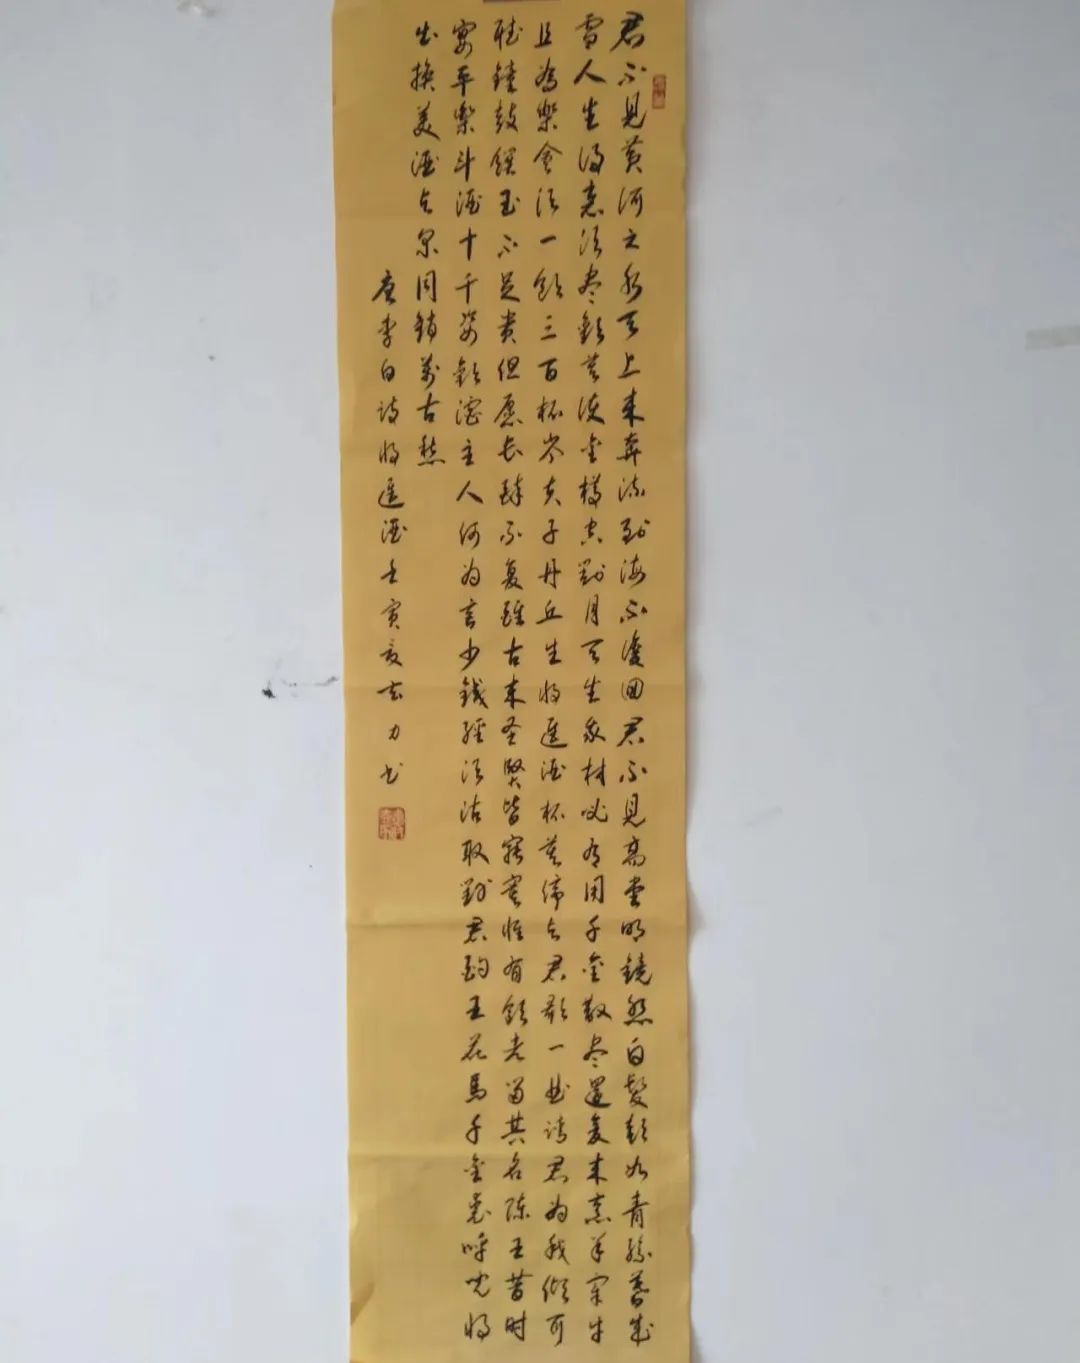 君不見黄河之水天上来奔流到海不復回君不見高堂明鏡悲白髮朝如青絲暮成
雪人生得意须盡歡莫使金樽空對月天生我材必有用千金散尽還复来烹羊宰牛
且為樂會须一飲三百杯岑夫子丹丘生将進酒杯莫停与君歌一曲请君为我倾耳
聴鐘鼓饌玉不足贵但愿长醉不复醒古来圣賢皆寂寞惟有飲者留其名陈王昔时
宴平樂斗酒十千恣歡谑主人何为言少錢徑须沽取對君酌五花馬千金裘呼兒将
出换美酒与尔同销萬古愁
唐李白诗将進酒壬寅夏志力书